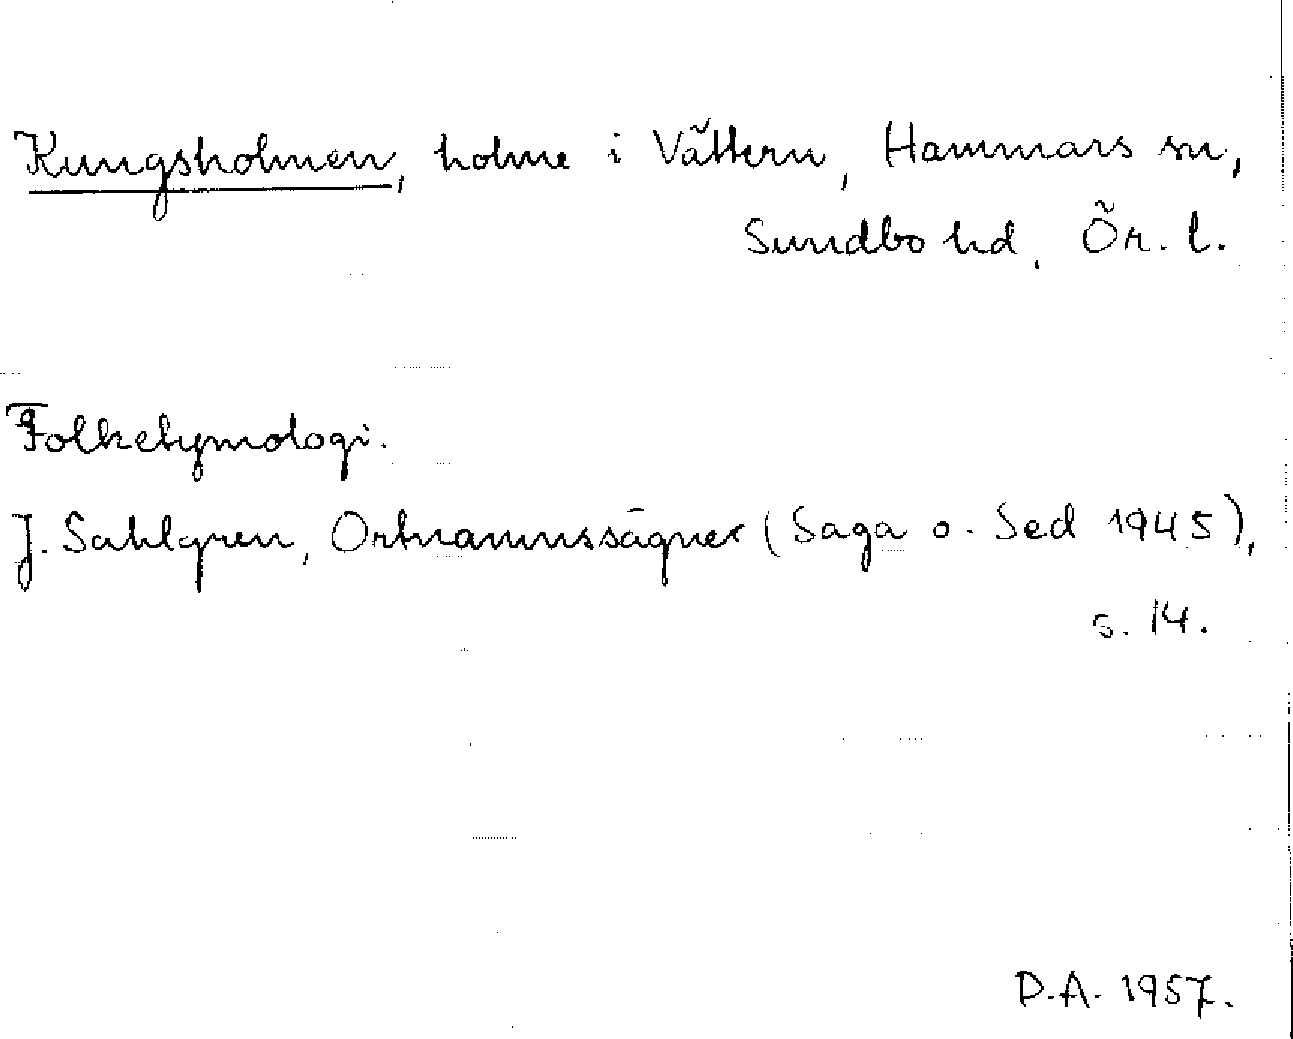 Kungsholmen, holme i Vättern, Hammars sn,
Sundbo hd, Ör. l.
Folketymologi.
J. Sahlgren, Ortnamnssägner (Saga o. Sed 1945),
s. 14.
D.A. 1957.